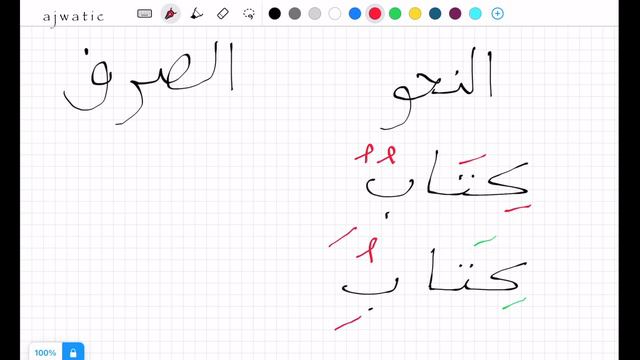 ajwatic
النحو الصرف
كِتَابٌ
كِتَابَُِ
100%